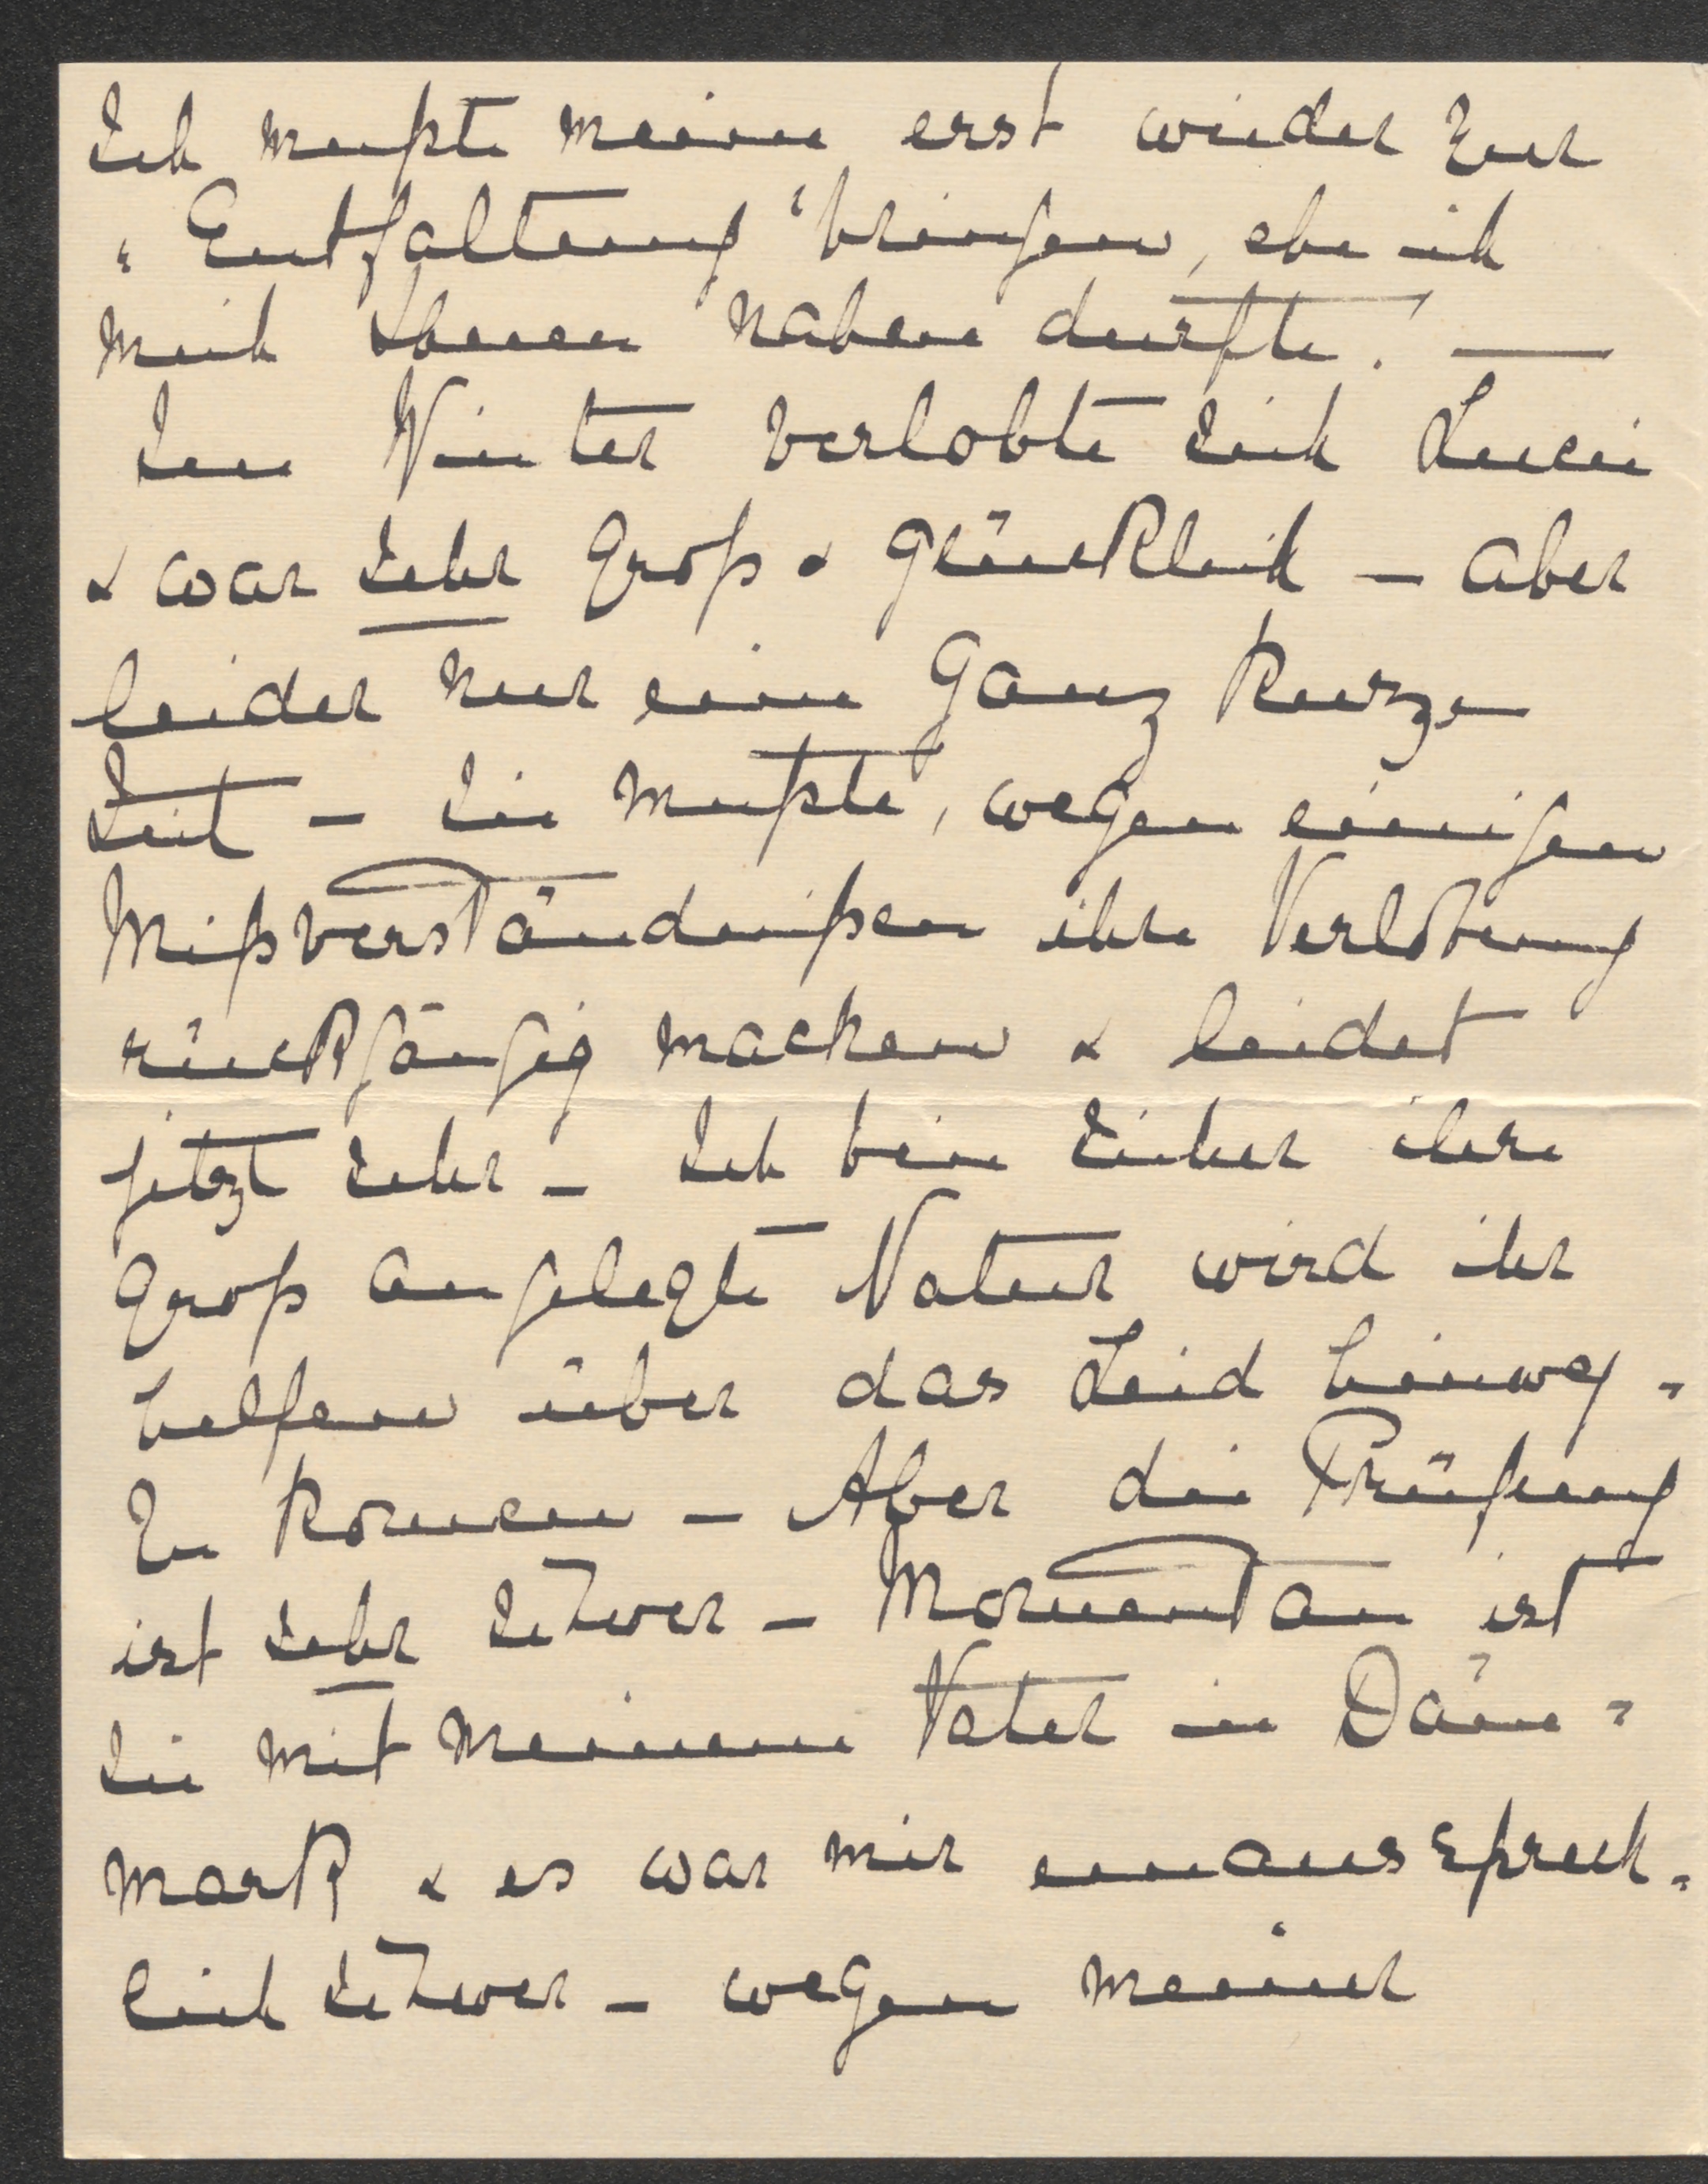 Ich mußte meine erst wieder zur
„Entfaltung“ bringen, ehe ich
mich Ihnen nahen durfte. —
Im Winter verlobte sich Luci
& war sehr groß & glücklich – aber
leider nur eine ganz kurze
Zeit – Sie mußte, wegen einigen
Mißverständnißen ihre Verlobung
rückgängig machen & leidet
jetzt sehr – Ich bin sicher ihre
groß angelegte Natur wird ihr
helfen über das Leid hinweg-
zu kommen – Aber die Prüfung
ist sehr schwer – Momentan ist
sie mit meinem Vater in Däne-
mark & es war mir unaussprech-
lich schwer – wegen meiner